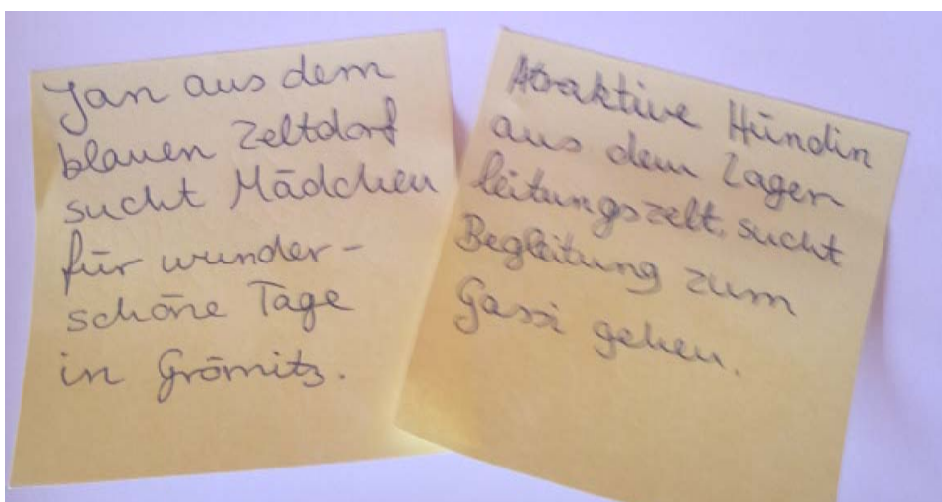 Jan aus dem
blauen Zeltdorf
sucht Mädchen
für wunder-
schöne Tage
in Grömitz.
Atraktive Hündin
aus dem Lager
leitungszelt, sucht
Begleitung zum
Gassi gehen.